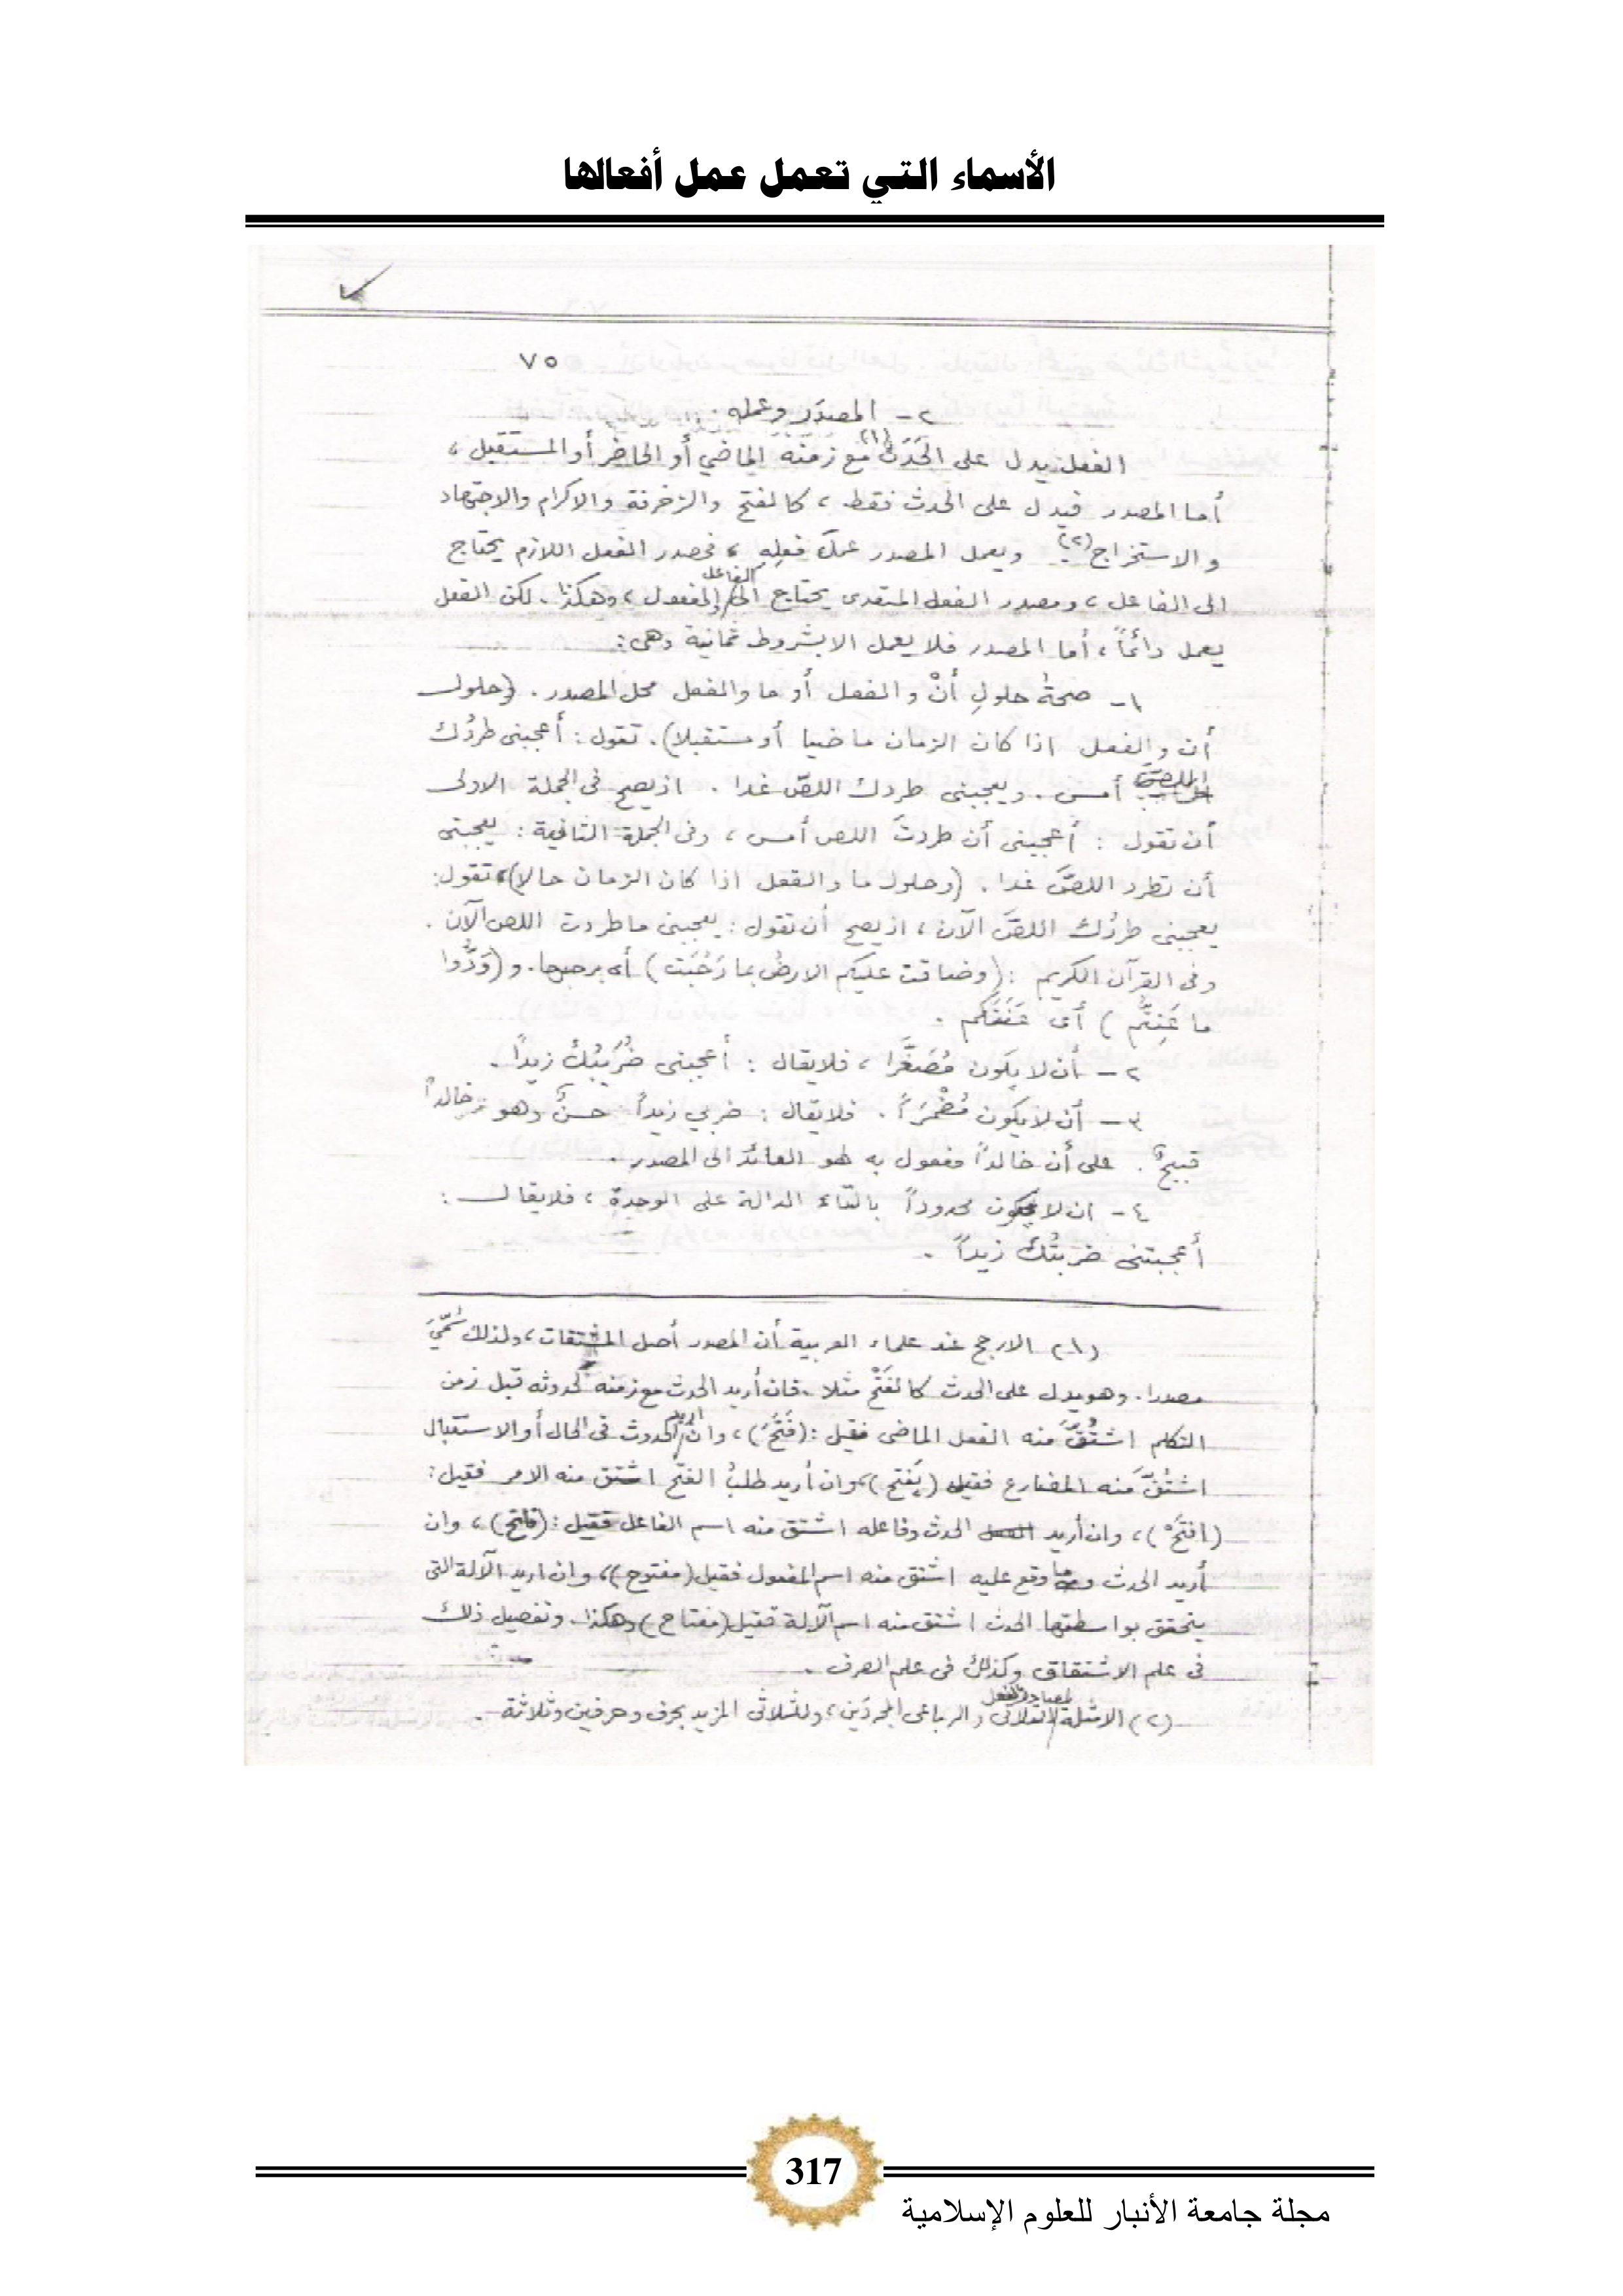 الأسماء التي تعمل عمل أفعالها
٧٥
٢- المصدر وعمله :
الفعل يدل على الحَدَث(١) مع زمنه الماضي أو الحاضر أو المستقبل ،
أما المصدر فيدل على الحدث فقط ، كالفتح والزخرفة والاكرام والاجتهاد
والاستخراج(٢) ويعمل المصدر عمل فعله ، فمصدر الفعل اللازم يحتاج
الى الفاعل ، ومصدر الفعل المتعدى يحتاج الى الفاعل والمفعول ، وهكذا . لكن الفعل
يعمل دائماً ، أما المصدر فلا يعمل الا بشروط ثمانية وهى :
١- صحةُ حلولِ أنْ والفعل أو ما والفعل محل المصدر . (حلول
أن والفعل اذا كان الزمان ماضيا أو مستقبلا) . تقول : أعجبنى طردُك
اللصَّ أمس . ويعجبنى طردك اللصّ غدا . اذ يصح فى الجملة الاولى
أن تقول : أعجبنى أن طردتَ اللص أمس ، وفى الجملة الثانية : يعجبنى
أن تطرد اللصَّ غدا . (وحلول ما والفعل اذا كان الزمان حالا) ، تقول :
يعجبنى طردُك اللصَّ الآن ، اذ يصح أن تقول : يعجبنى ما طردت اللص الآن .
وفى القرآن الكريم : (وضاقت عليكم الارضُ بما رَحُبَت) أى برحبها . و (وَدُّوا
ما عَنِتُّم ) أى عَنَتَكم .
٢- أن لا يكون مُصَغَّرا ، فلا يقال : أعجبنى ضُرَيْبُكَ زيداً .
٣- أن لا يكون مُضْمَرَاً . فلا يقال : ضربي زيداً حسنٌ وهو خالداً
قبيحٌ . على أن خالداً مفعول به لهو العائد الى المصدر .
٤- ان لا يكون محدوداً بالتاء الدالة على الوحدة ، فلا يقال :
أعجبتنى ضربتُكَ زيداً .
(١) الارجح عند علماء العربية أن المصدر أصل المشتقات ، ولذلك سُمِّيَ
مصدرا . وهو يدل على الحدث كالفَتْح مثلا . فان أريد الحدث مع زمنه لحدوثه قبل زمن
التكلم اشتُقَّ منه الفعل الماضى فقيل : (فَتَحَ) ، وان اريد الحدوث فى الحال أو الاستقبال
اشتُقَّ منه المضارع فقيل (يَفتح) ، وان أريد طلبُ الفتح اشتق منه الامر فقيل :
(افتَحْ) ، وان أريد الحدث وفاعله اشتق منه اسم الفاعل فقيل : (فاتح) ، وان
أريد الحدث وما وقع عليه اشتق منه اسم المفعول فقيل (مفتوح) ، وان اريد الآلة التى
يتحقق بواسطتها الحدث اشتق منه اسم الآلة فقيل (مفتاح) وهكذا . وتفصيل ذلك
فى علم الاشتقاق وكذلك فى علم الصرف .
(٢) الامثلة لمصادر الفعل الثلاثى والرباعى المجردَين ، وللثلاثى المزيد بحرف وحرفين وثلاثة .
317
مجلة جامعة الأنبار للعلوم الإسلامية